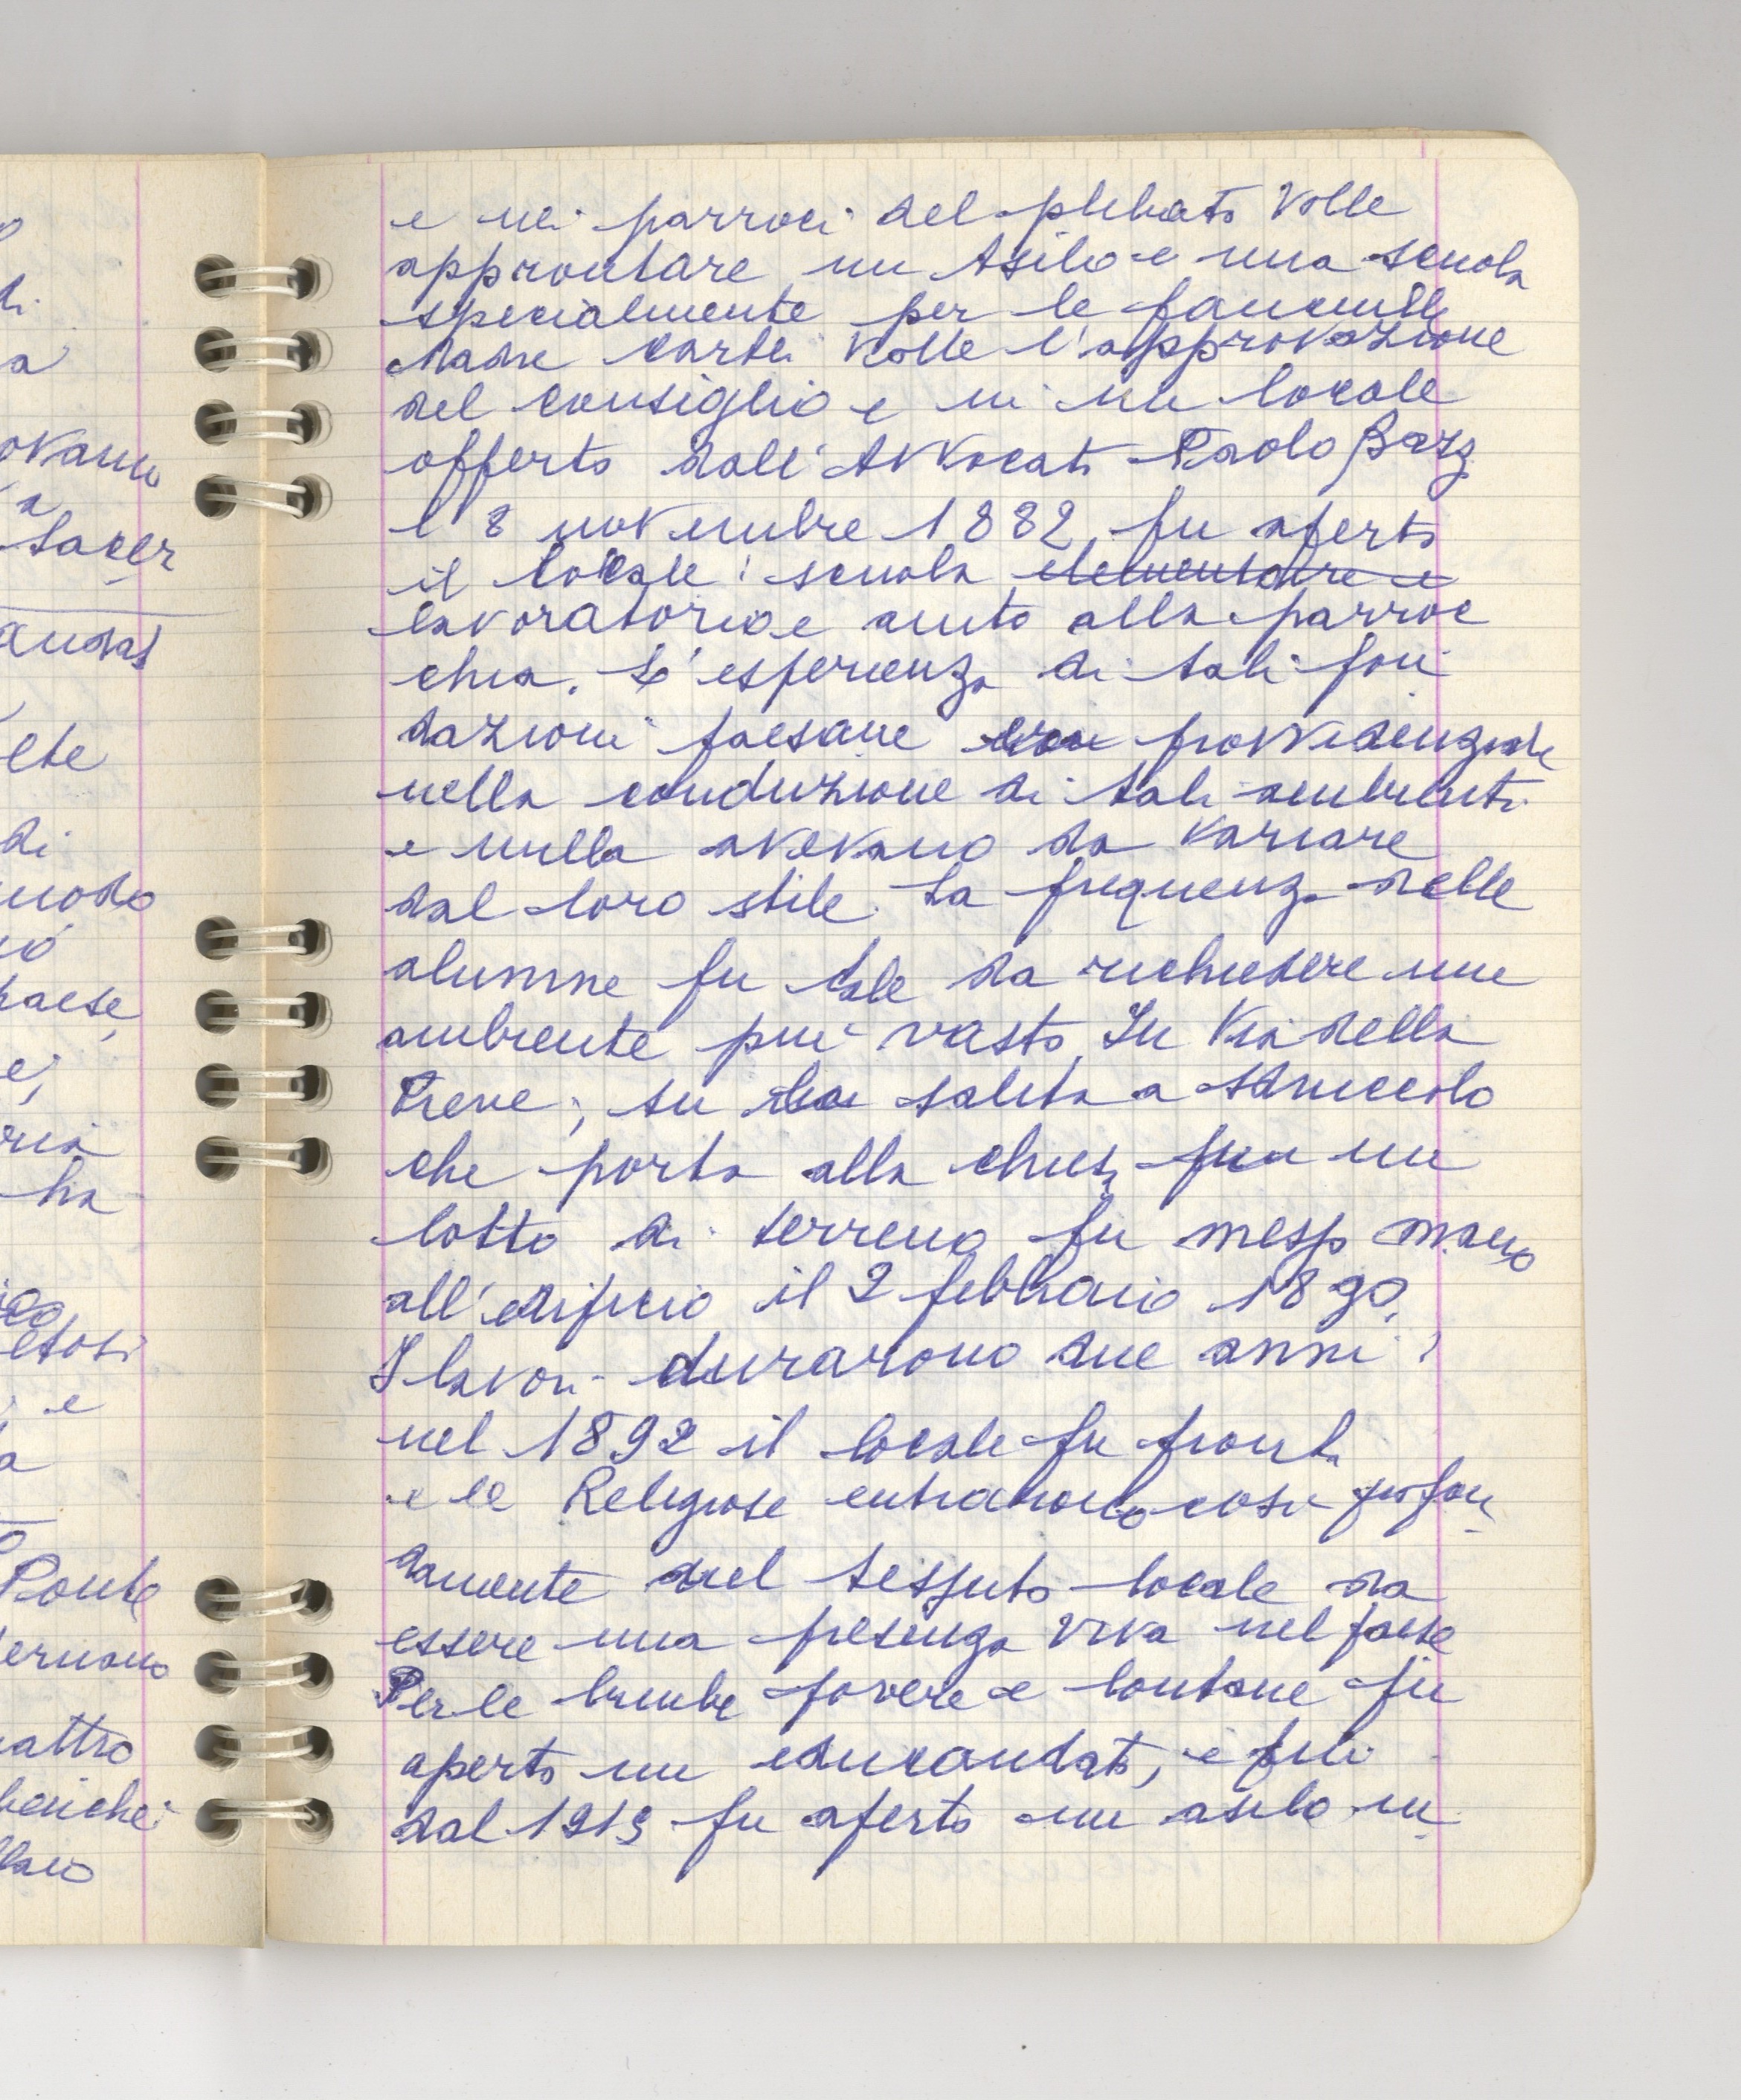 o
di
a
ovano
a
Sacer
andas
elte
di
modo
iò
paese,
e,
ria
ha
ico
etosi
e
a
o
Ponte
ernano
uattro
benchè
llano
e nei parroci del plebato volle
approntare un Asilo e una scuola
specialmente per le fanciulle
Madre Carla volle l'approvazione
del consiglio e in un locale
offerto dall'Avvocato Paolo Barz
l'8 novembre 1882, fu aperto
il locale: scuola elementare e
lavoratorio e aiuto alla parroc
chia. L'esperienza di tali fon
dazioni paesane era provvidenziale
nella conduzione di tali ambienti
e nulla avevano da variare
dal loro stile. La frequenza delle
alunne fu tale da richiedere une
ambiente più vasto. In Via della
Pieve, su la salita a sdrucciolo
che porta alla chiesa fu un
lotto di terreno fu messo mano
all'edificio il 2 febbraio 1890.
I lavori durarono due anni:
nel 1892 il locale fu pronto
e le Religiose entrarono così profon
damente nel tessuto locale da
essere una presenza viva nel paese
Per le bimbe povere e lontane fu
aperto un educandato, e fin
dal 1919 fu aperto un asilo in